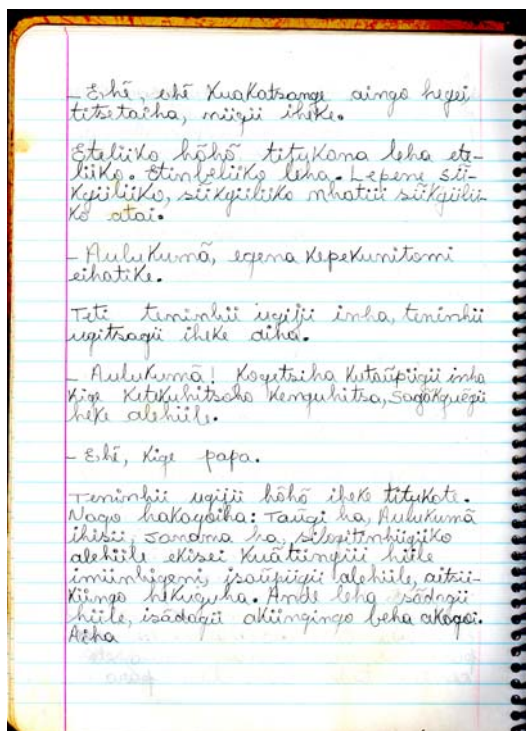 _ Ehẽ, ehẽ Kuakatsange aingo hegei
titsetaiha, nügü iheke.
Etelüko hõhõ titykona leha ete-
lüko. Etinbelüko leha. Lepene sü-
kgülüko, sükgülüko nhatüi sükgülü-
ko atai.
_ Aulukumã, egena kepekunitomi
eihatike.
Teti teninhü ugijü inha, teninhü
ugitsagü iheke diha.
_ Aulukumã! Kogetsiha kutaũpügü inha
kige ketekuhitsoho kenguhitsa, sagõkguẽgü
heke alehüle.
_ Ehẽ, kige papa.
Teninhü ugijü hõhõ iheke titykote.
Nago hakagoiha: Taũgi ha, Aulukumã
ihisü, Janama ha, silogitinhügüko
alehüle ekisei kuãtüngüü hüle
imünhigeni, isaũpügü alehüle, aitsü-
küingo hekuguha. Ande leha isãdagü
hüle, isãdagü aküngingo beha akagoi.
Aiha